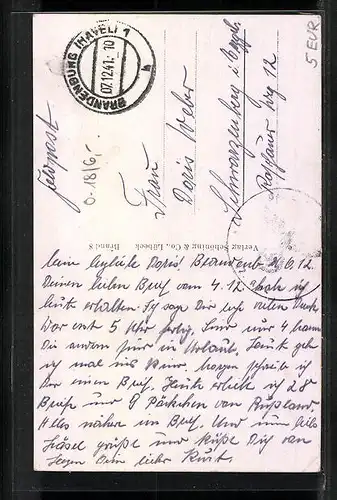 BRANDENBURG (HAVEL) 1
07.12.41.-10
h
5 EUR
Feldpost
0-18/6,-
Frau
Doris Weber
Schwarzenberg i. Erzgeb.
Weg 12
Verlag Schöning & Co., Lübeck
Brand 8
Doris! 6.12.
Deinen lieben Brief vom 4.12. hab ich
heut erhalten. Ich sage Dir recht vielen Dank.
War erst 5 Uhr fertig. Sind nur 4 Mann
Die andern sind in Urlaub. Heut geh
ich mal ins Kino, morgen schreib ich
Dir einen Brief. Heute erhielt ich 28
Briefe und 9 Päckchen von Rußland.
Alles näher im Brief. Und nun liebs
Häsel grüße und küße Dich von
Herzen Dein lieber Kurt.